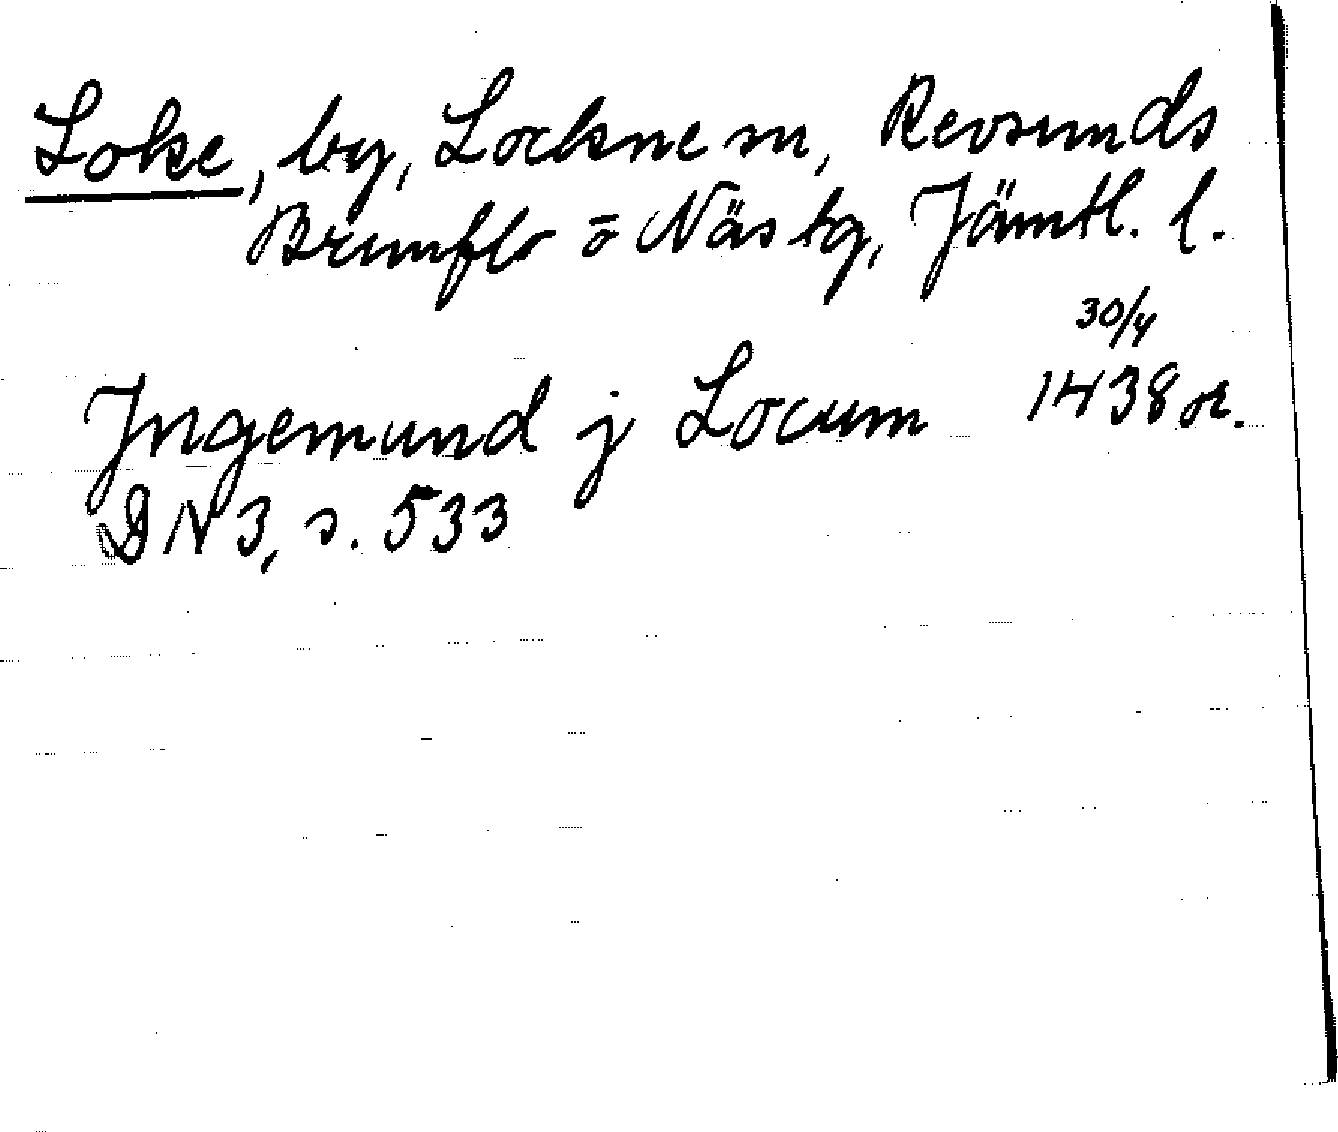 Loke, by, Lockne sn, Revsunds
Brunflo o Näs tg, Jämtl. l.
30/4
Ingemund j Locum 1438 or.
DN 3, s. 533